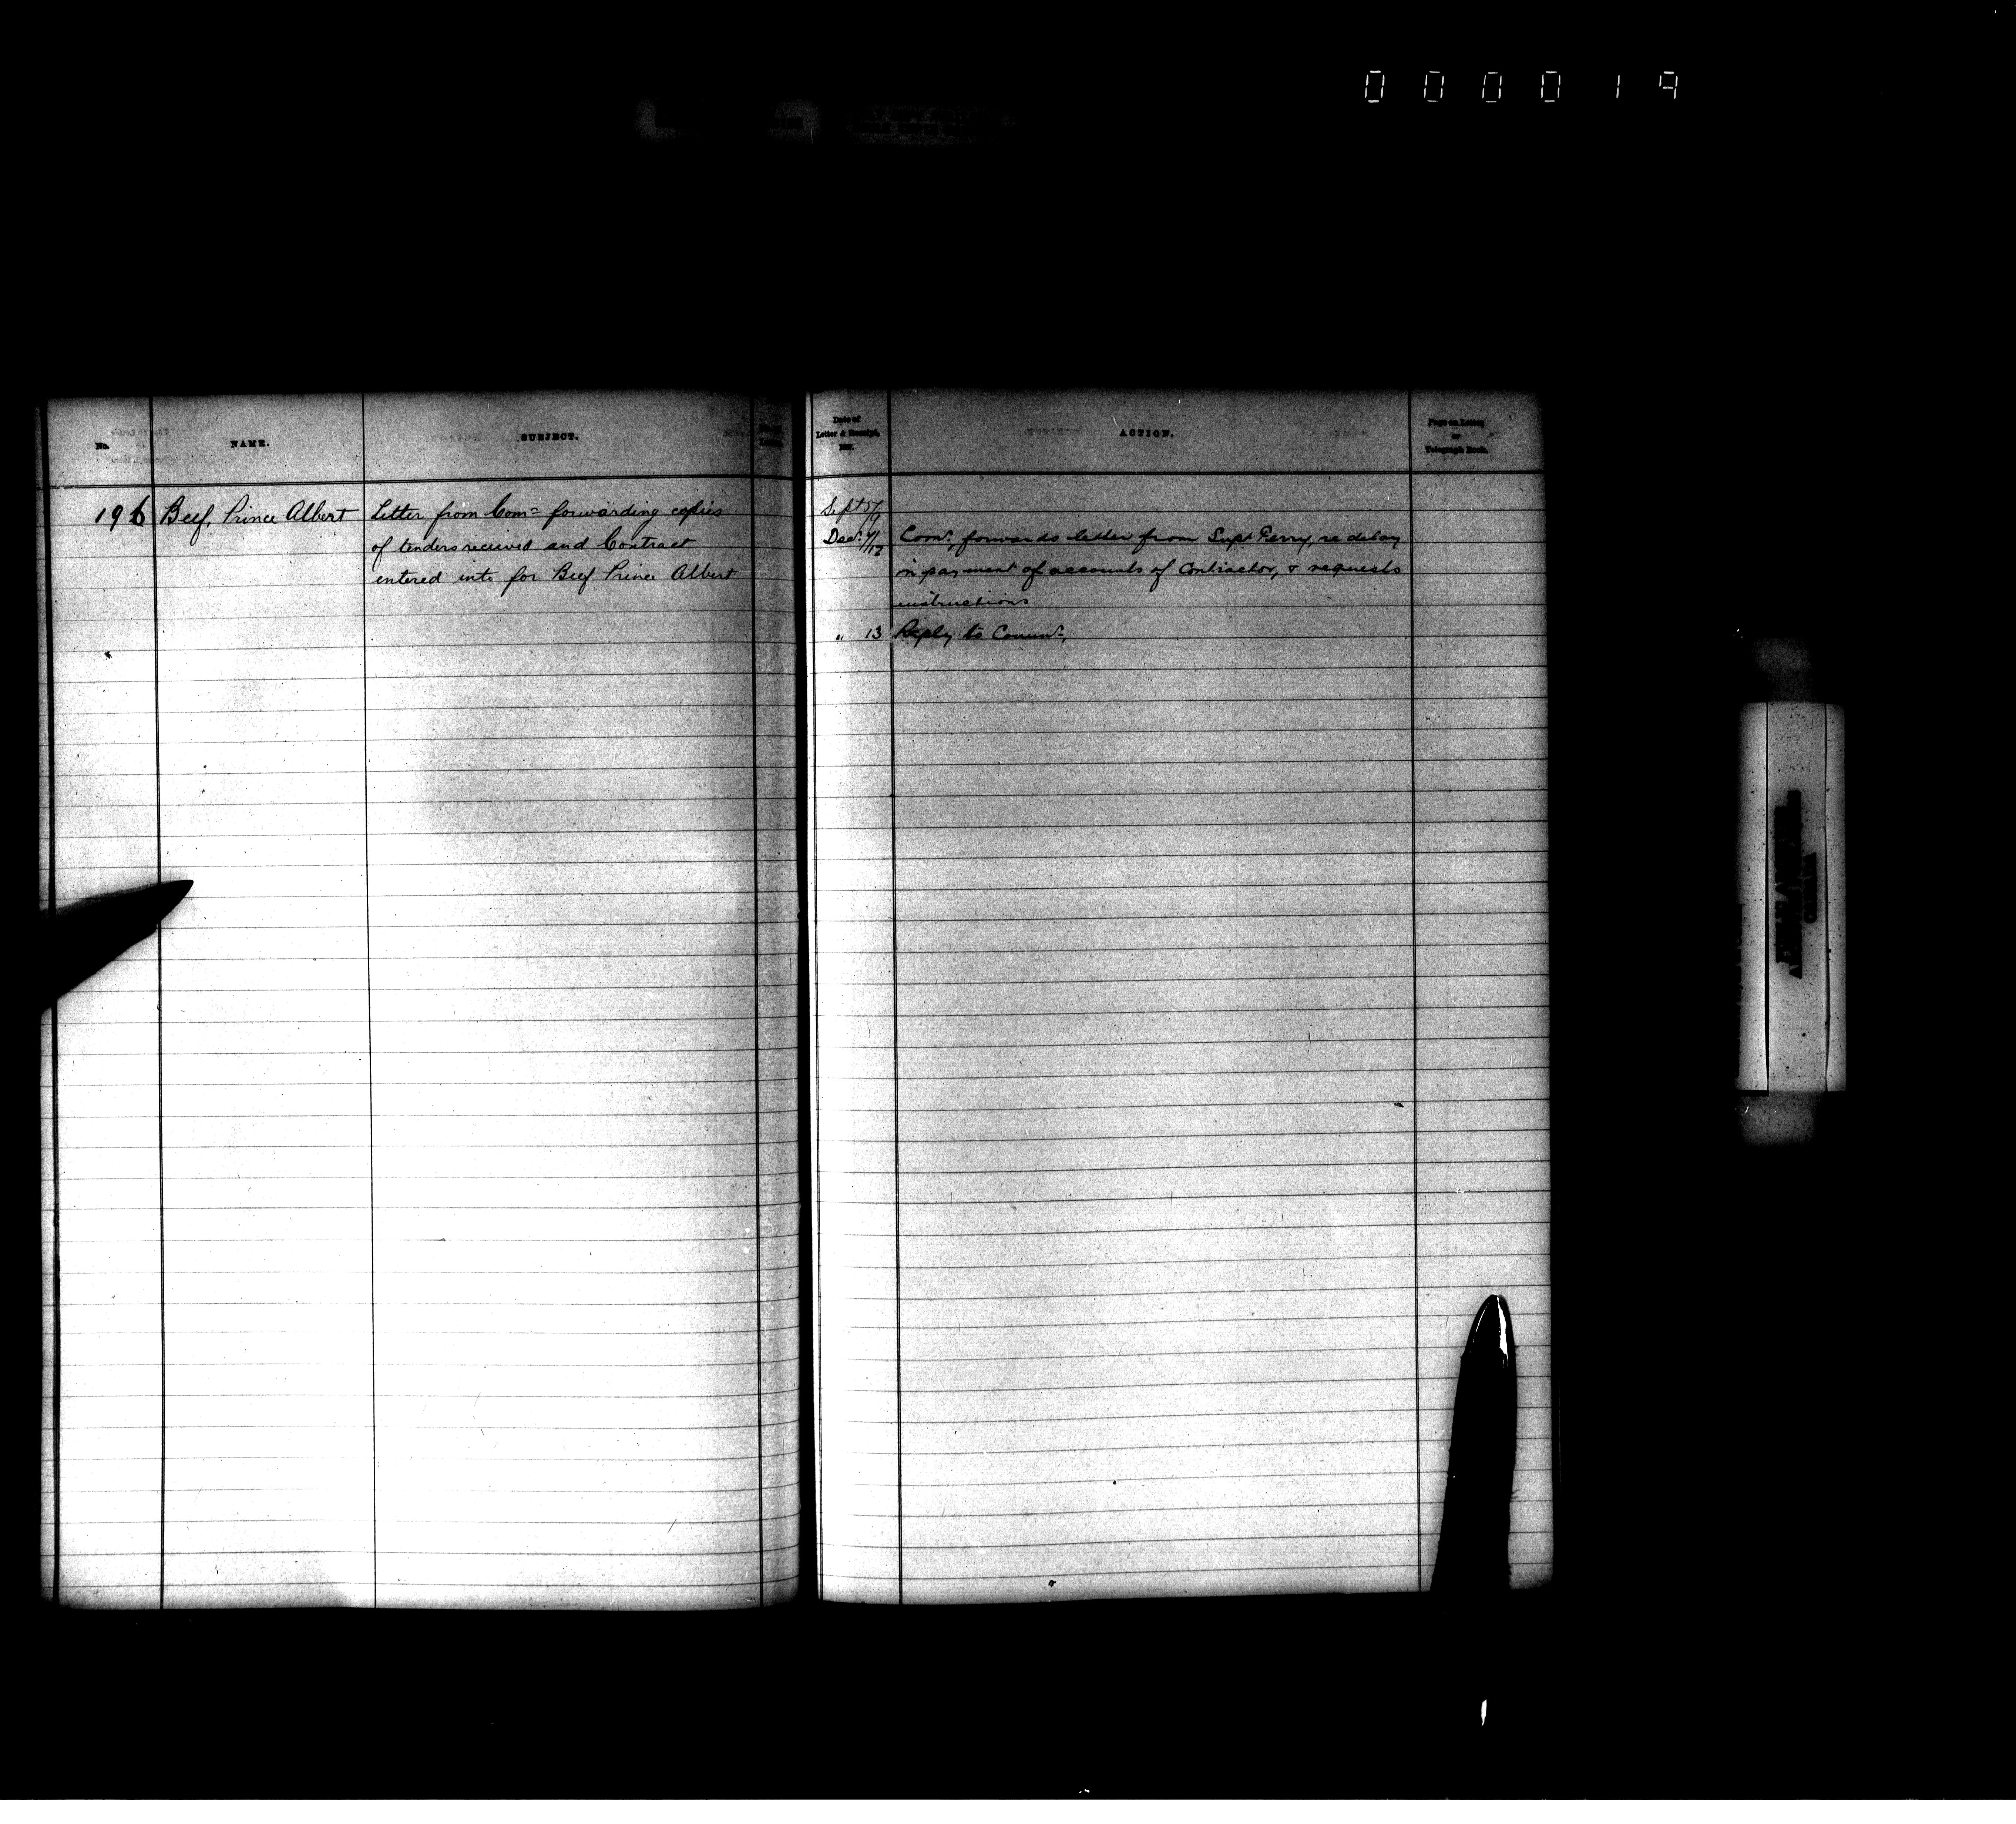 000019
No.
NAME.
SUBJECT.
196 Beef, Prince Albert
Letter from Comr forwarding copies
of tenders received and Contract
entered into for Beef Prince Albert
Date of
Letter & Receipt,
188
ACTION.
Page on Letter
or
Telegraph Book.
Sept
Decr 7/12 Comr. forwards letter from Supt Perry, re delay
in payment of accounts of Contractor, & requests
instructions
" 13 Reply to Commr.